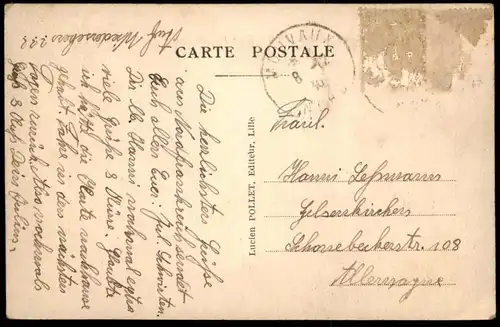 Auf Wiedersehen ???
CARTE POSTALE
Die herrlichsten Grüße
aus Nordfrankreich sendet
Euch allen Euer Jul.
Dir lb. Hanni nochmal extra
viele Grüße & Küsse. Glaubte
ich hätt die Karte nachhause
gehabt. Fahre in den nächsten
Tagen zurück. Also nochmals
Gruß & Kuß Dein Julius.
Lucien POLLET, Editeur, Lille
Fräul.
Hanni Leßmann
Gelsenkirchen
Schonnebeckerstr. 108
Allemagne